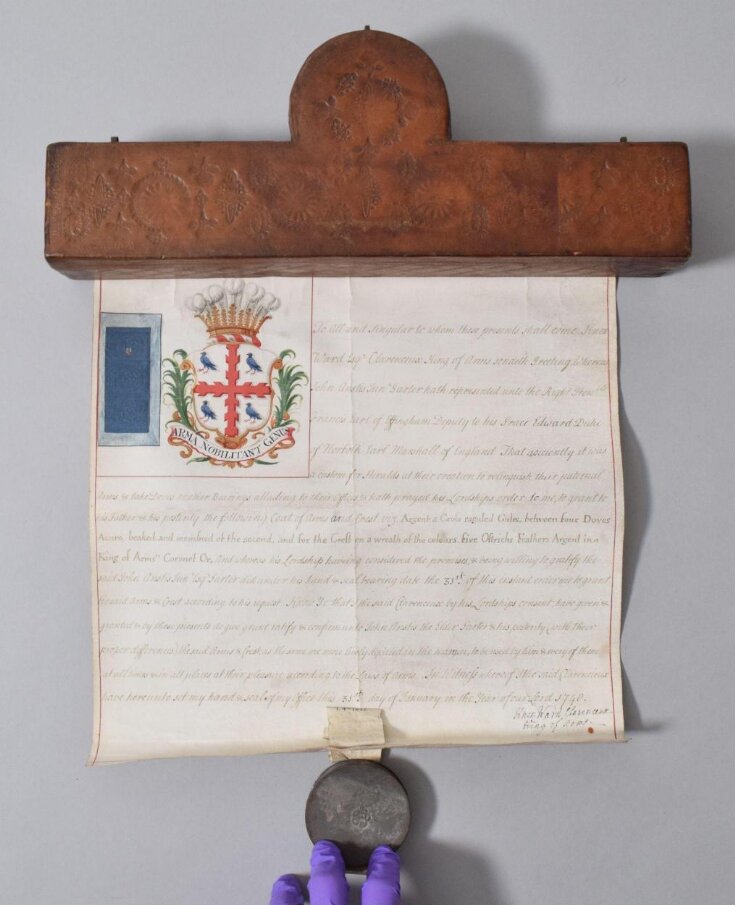 ARMA NOBILITANT GENUS
To All and Singular to whom these presents shall come Knox
Ward Esqr. Clarenceux King of Arms sendeth Greeting Whereas
John Anstis Junr. Garter hath represented unto the Right Honble.
Francis Earl of Effingham Deputy to his Grace Edward Duke
of Norfolk Earl Marshall of England That anciently it was
a custom for Heralds at their creation to relinquish their paternal
Arms & take Doves or other Bearings alluding to their Offices & hath prayed his Lordships order to me, to grant
his Father & his posterity the following Coat of Arms and Crest viz. Argent a Cross raguled Gules, between four Doves
Azure, beaked and membred of the second, and for the Crest on a wreath of the colours, five Ostrich Feathers Argent in a
King of Arms Coronet Or, And whereas his Lordship having considered the premises, & being willing to gratify the
said John Anstis Junr. Esqr. Garter did under his hand & seal bearing date the 31st of this instant order me to grant
the said Arms & Crest according to his request. that I the said Clarenceux by his Lordships consent have given &
granted & by these presents do give grant ratify & confirm unto John Anstis the Elder Garter & his posterity (with their
proper differences) the said Arms & Crest as the same are more lively depicted in the margin, to be used by him & every of them
at all times & in all places at their pleasure according to the Laws of Arms. In Witness whereof I the said Clarenceux
have hereunto set my hand & seal of my Office this 31st day of January in the Year of our Lord 1740.
Knox Ward Clarenceux
King of Arms